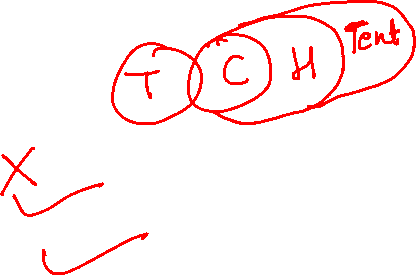 T C H Tent
X